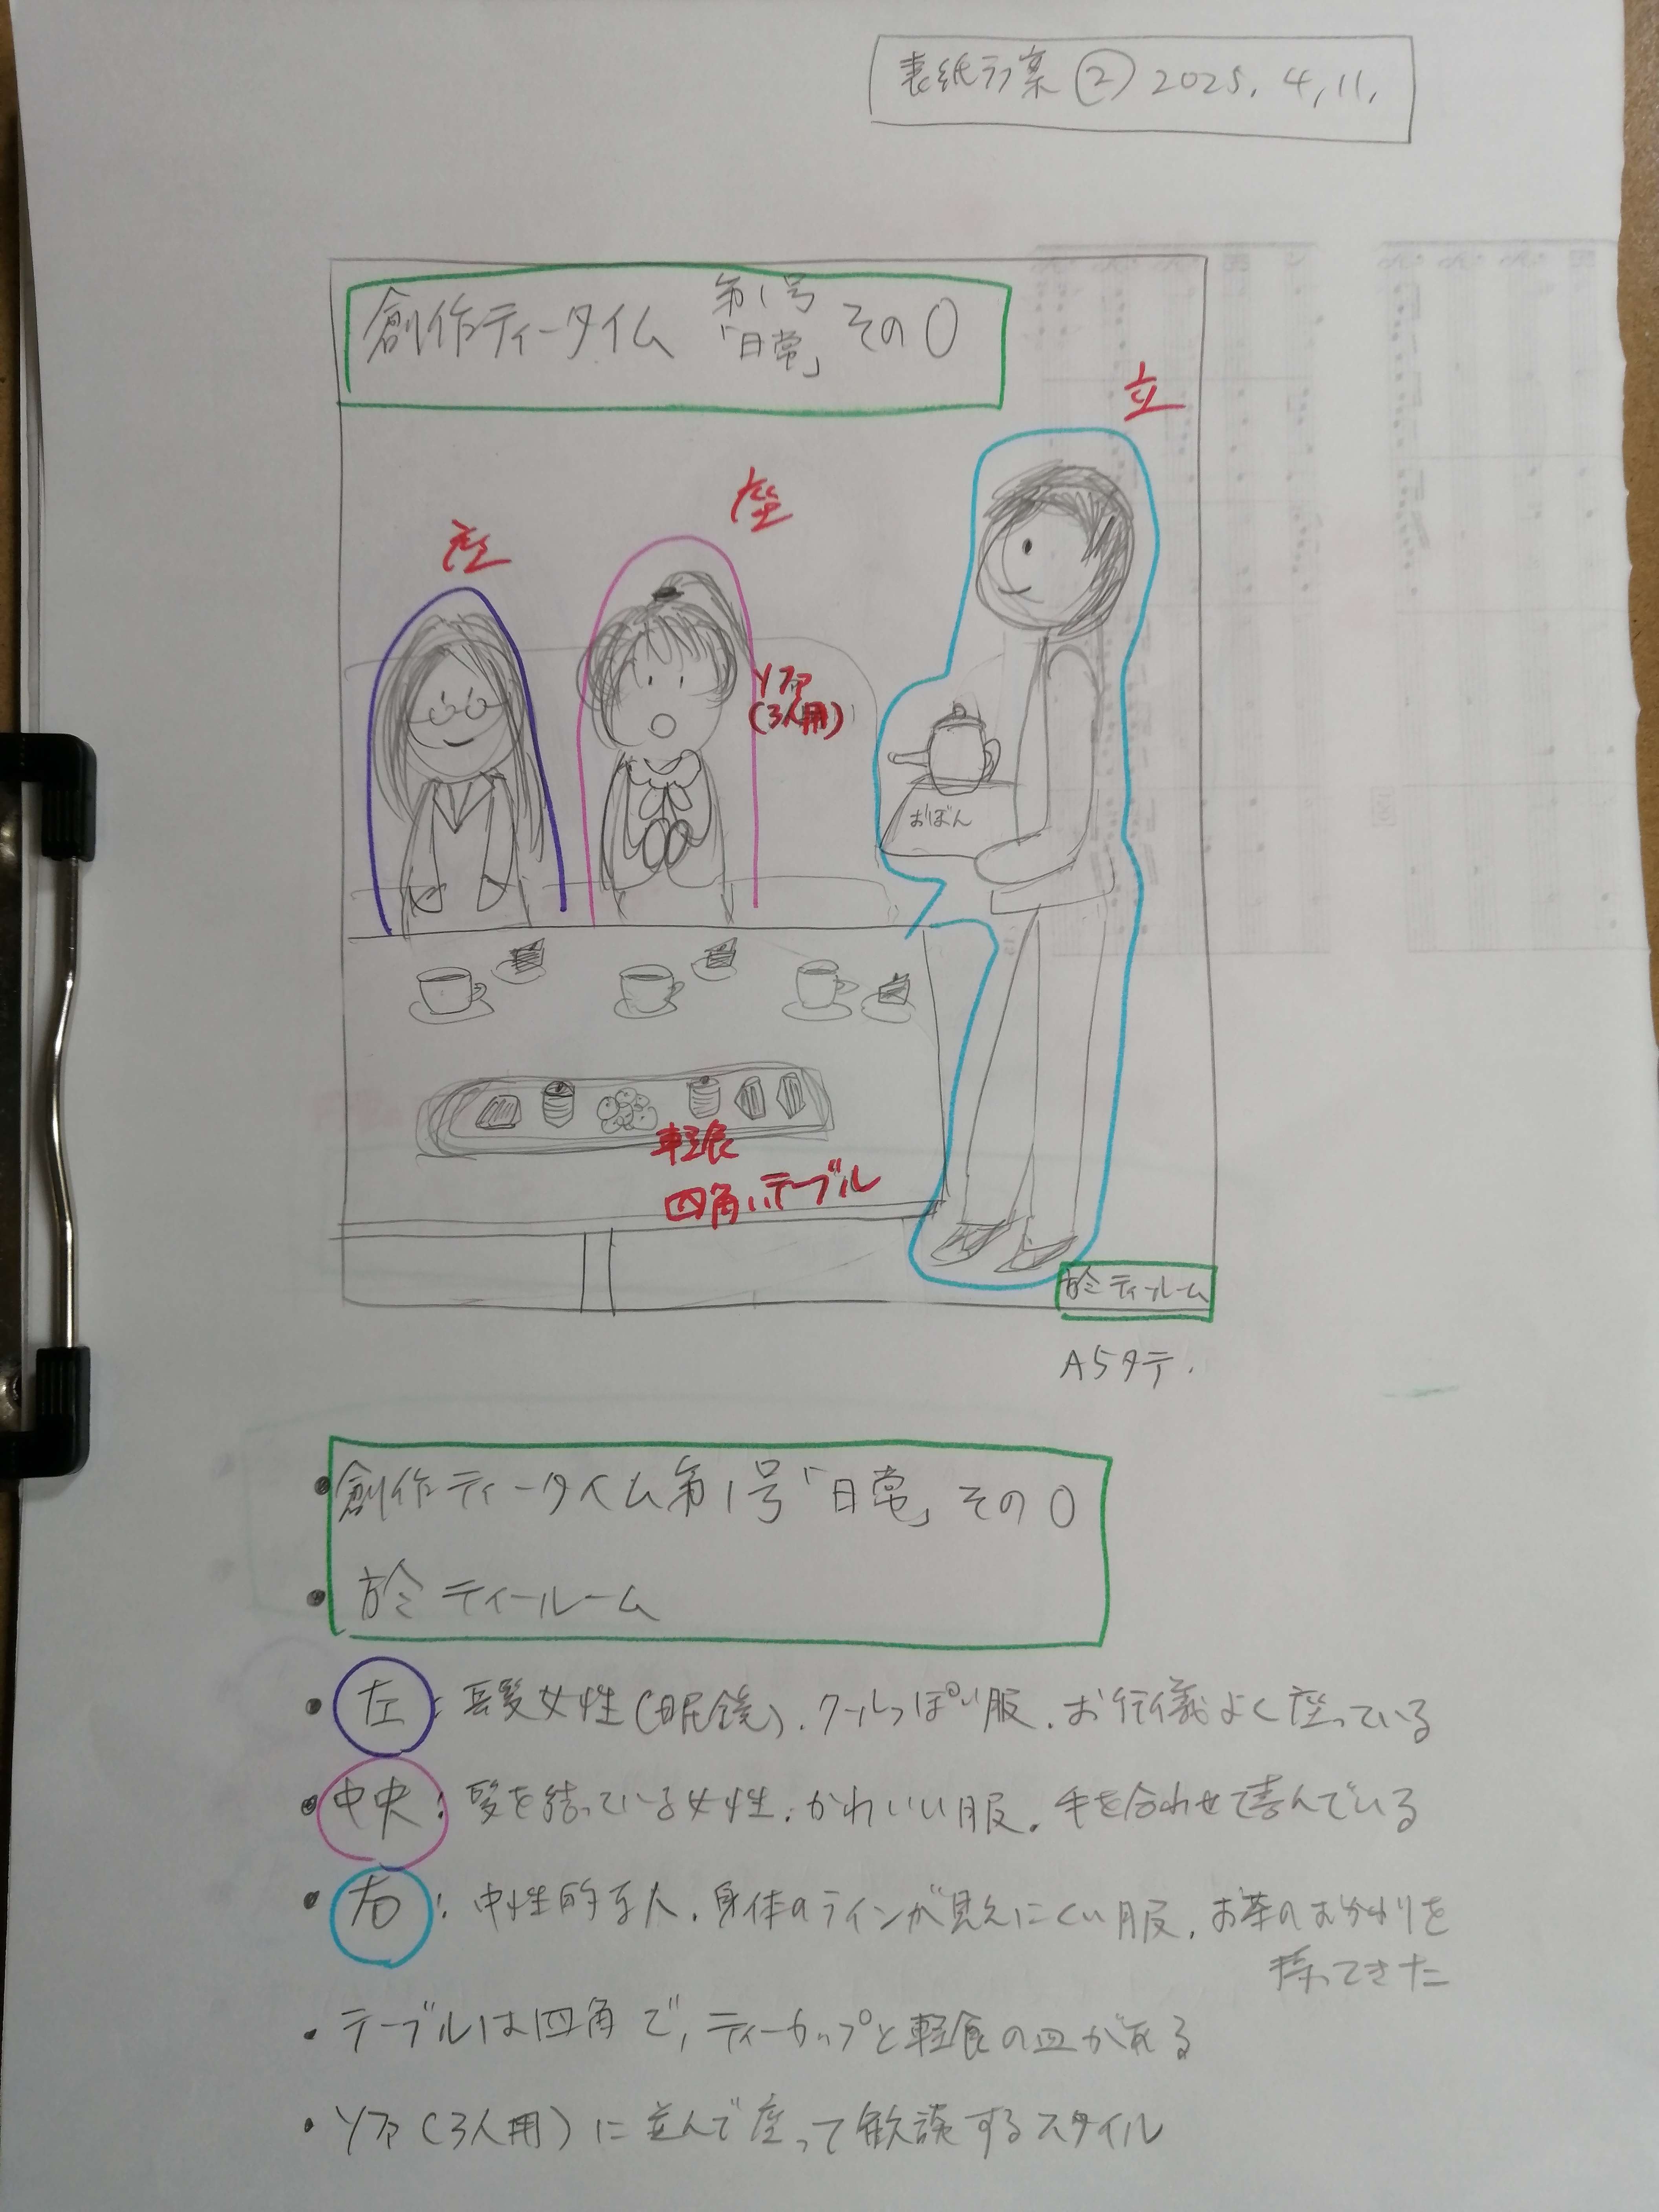 表紙ラフ案② 2025.4.11.
創作ティータイム 第1号「日常」その0
立
座
座
ソファ
(3人用)
おぼん
軽食
四角いテーブル
於ティールーム
A5タテ.
・創作ティータイム第1号「日常」その0
・於ティールーム
・左:長髪女性(眼鏡).クールっぽい服.お行儀よく座っている
・中央:髪を結っている女性.かわいい服.手を合わせて喜んでいる
・右:中性的な人.身体のラインが見えにくい服.お茶のおかわりを
持ってきた
・テーブルは四角で,ティーカップと軽食の皿がある
・ソファ(3人用)に並んで座って歓談するスタイル